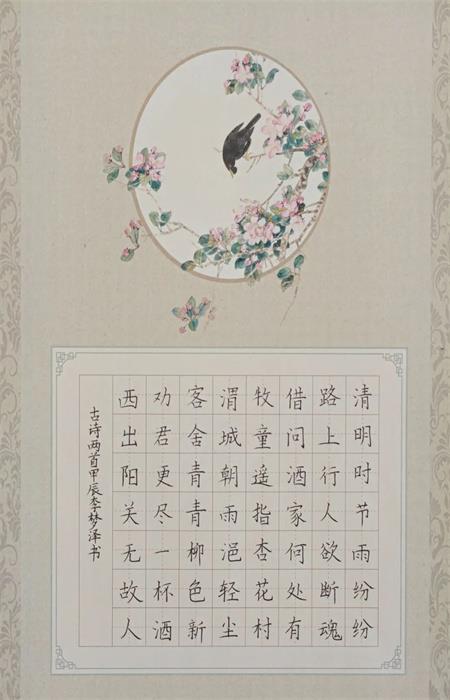 清明时节雨纷纷
路上行人欲断魂
借问酒家何处有
牧童遥指杏花村
渭城朝雨浥轻尘
客舍青青柳色新
劝君更尽一杯酒
西出阳关无故人
古诗两首甲辰李梦泽书